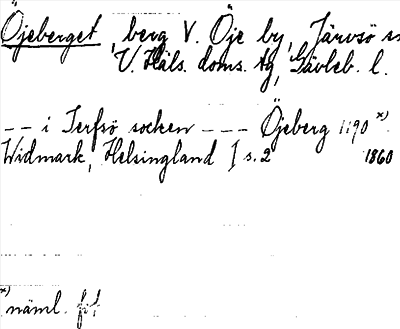 Öjeberget, berg V. Öje by, Järvsö sn
V. Häls. doms. tg, Gävleb. l.
-- i Jerfsö socken --- Öjeberg 1190 x)
Widmark, Helsingland I s. 2 1860
x) näml. fot